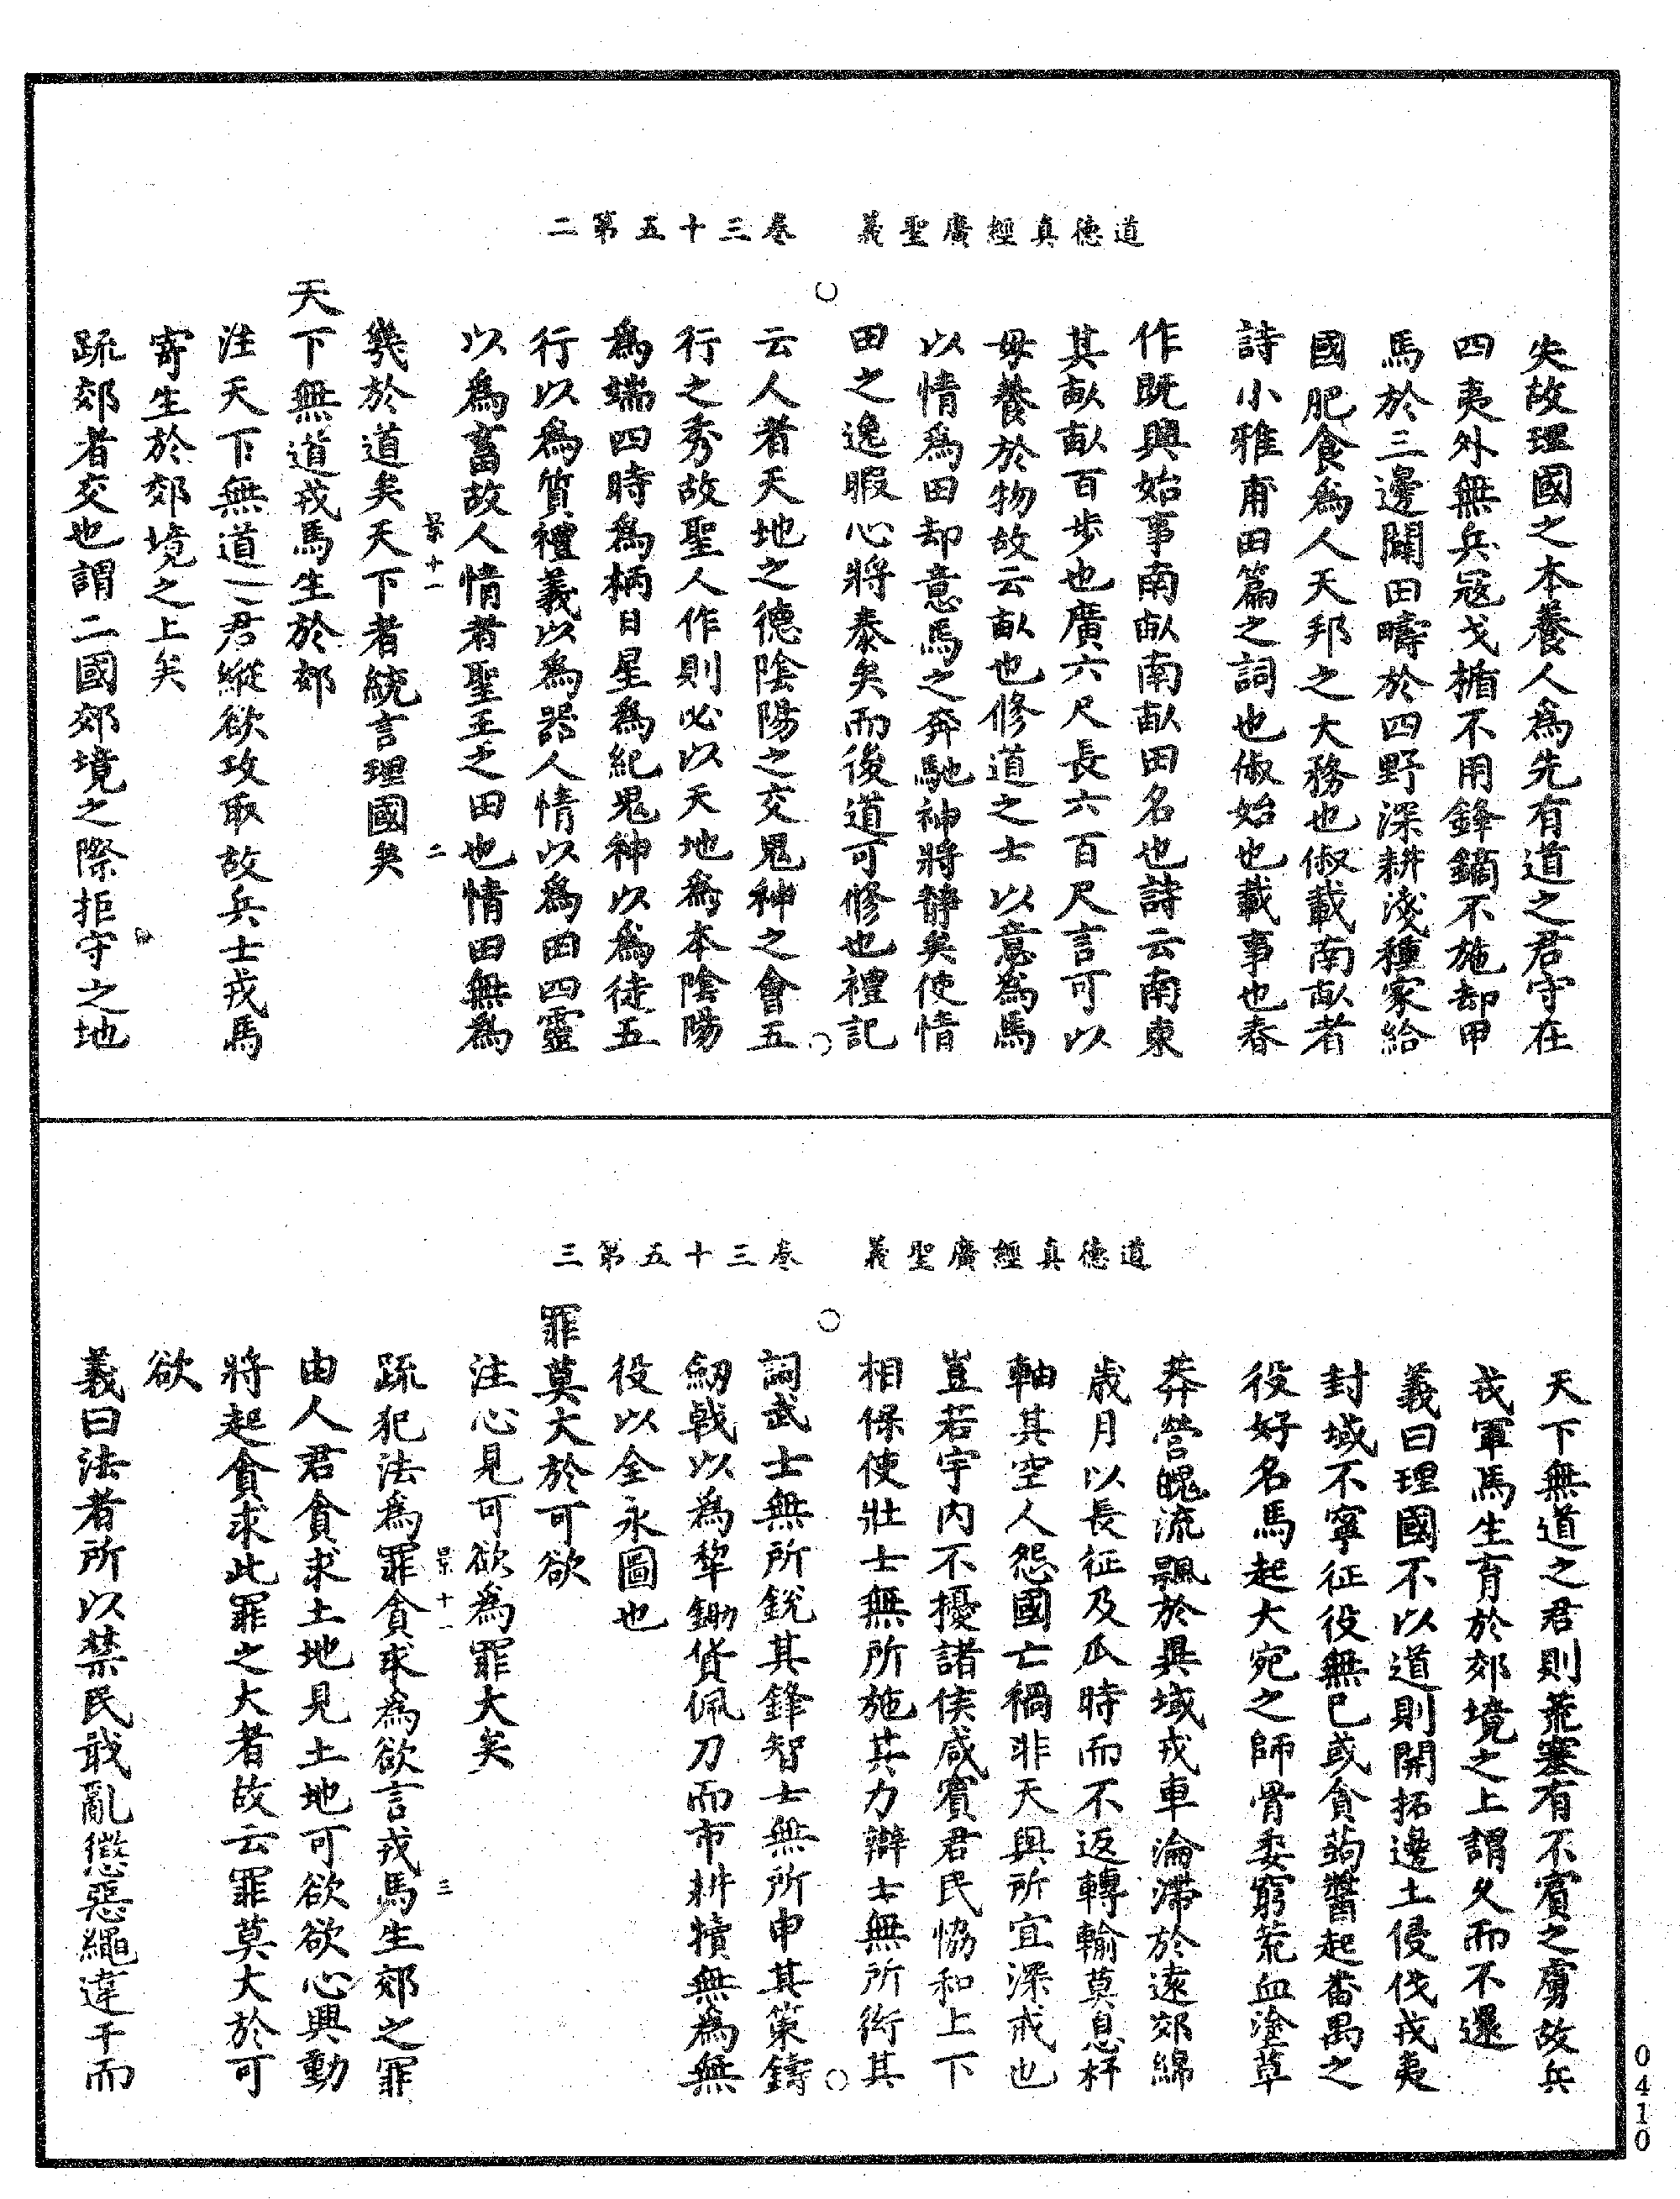 道德真經廣聖義　卷三十五第二
失故理國之本養人為先有道之君守在
四夷外無兵寇戈楯不用鋒鏑不施却甲
馬於三邊闢田疇於四野深耕淺種家給
國肥食為人天邦之大務也俶載南畝者
詩小雅甫田篇之詞也俶始也載事也春
作既興始事南畝南畝田名也詩云南東
其畝畝百步也廣六尺長六百尺言可以
毋養於物故云畝也修道之士以意為馬
以情為田却意馬之奔馳神將靜矣使情
田之逸暇心將泰矣而後道可修也禮記
云人者天地之德陰陽之交鬼神之會五
行之秀故聖人作則必以天地為本陰陽
為端四時為柄日星為紀鬼神以為徒五
行以為質禮義以為器人情以為田四靈
以為畜故人情者聖王之田也情田無為
景十一　二
幾於道矣天下者統言理國矣
天下無道戎馬生於郊
注天下無道之君縱欲攻取故兵士戎馬
寄生於郊境之上矣
疏郊者交也謂二國郊境之際拒守之地
道德真經廣聖義　卷三十五第三
天下無道之君則荒塞有不賓之虜故兵
戎軍馬生育於郊境之上謂久而不還
義曰理國不以道則開拓邊土侵伐戎夷
封域不寧征役無已或貪蒟醬起番禺之
役好名馬起大宛之師骨委窮荒血塗草
莽營魄流飄於異域戎車淪滯於遠郊綿
歲月以長征及瓜時而不返轉輸莫息杼
軸其空人怨國亡禍非天與所宜深戒也
豈若宇內不擾諸侯咸賓君民恊和上下
相保使壯士無所施其力辯士無所衒其
詞武士無所銳其鋒智士無所申其策鑄
劒戟以為犂鋤貨佩刀而市耕犢無為無
役以全永圖也
罪莫大於可欲
注心見可欲為罪大矣
景十一　三
疏犯法為罪貪求為欲言戎馬生郊之罪
由人君貪求土地見土地可欲欲心興動
將起貪求此罪之大者故云罪莫大於可
欲
義曰法者所以禁民戢亂懲惡繩違干而
0410